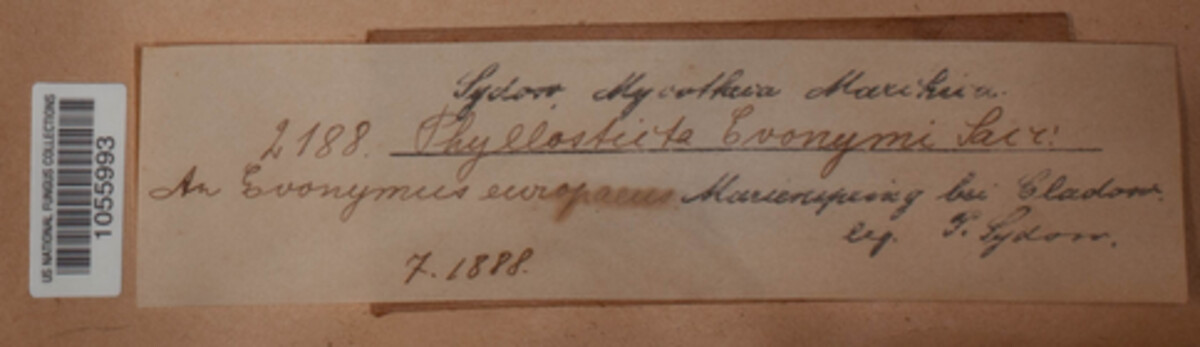 US NATIONAL FUNGUS COLLECTIONS
1055993
Sydow, Mycotheca Marchica.
2188. Phyllosticta Evonymi Sacc.
An Evonymus europaeus Marienspring bei Cladow.
leg. P. Sydow.
7. 1888.